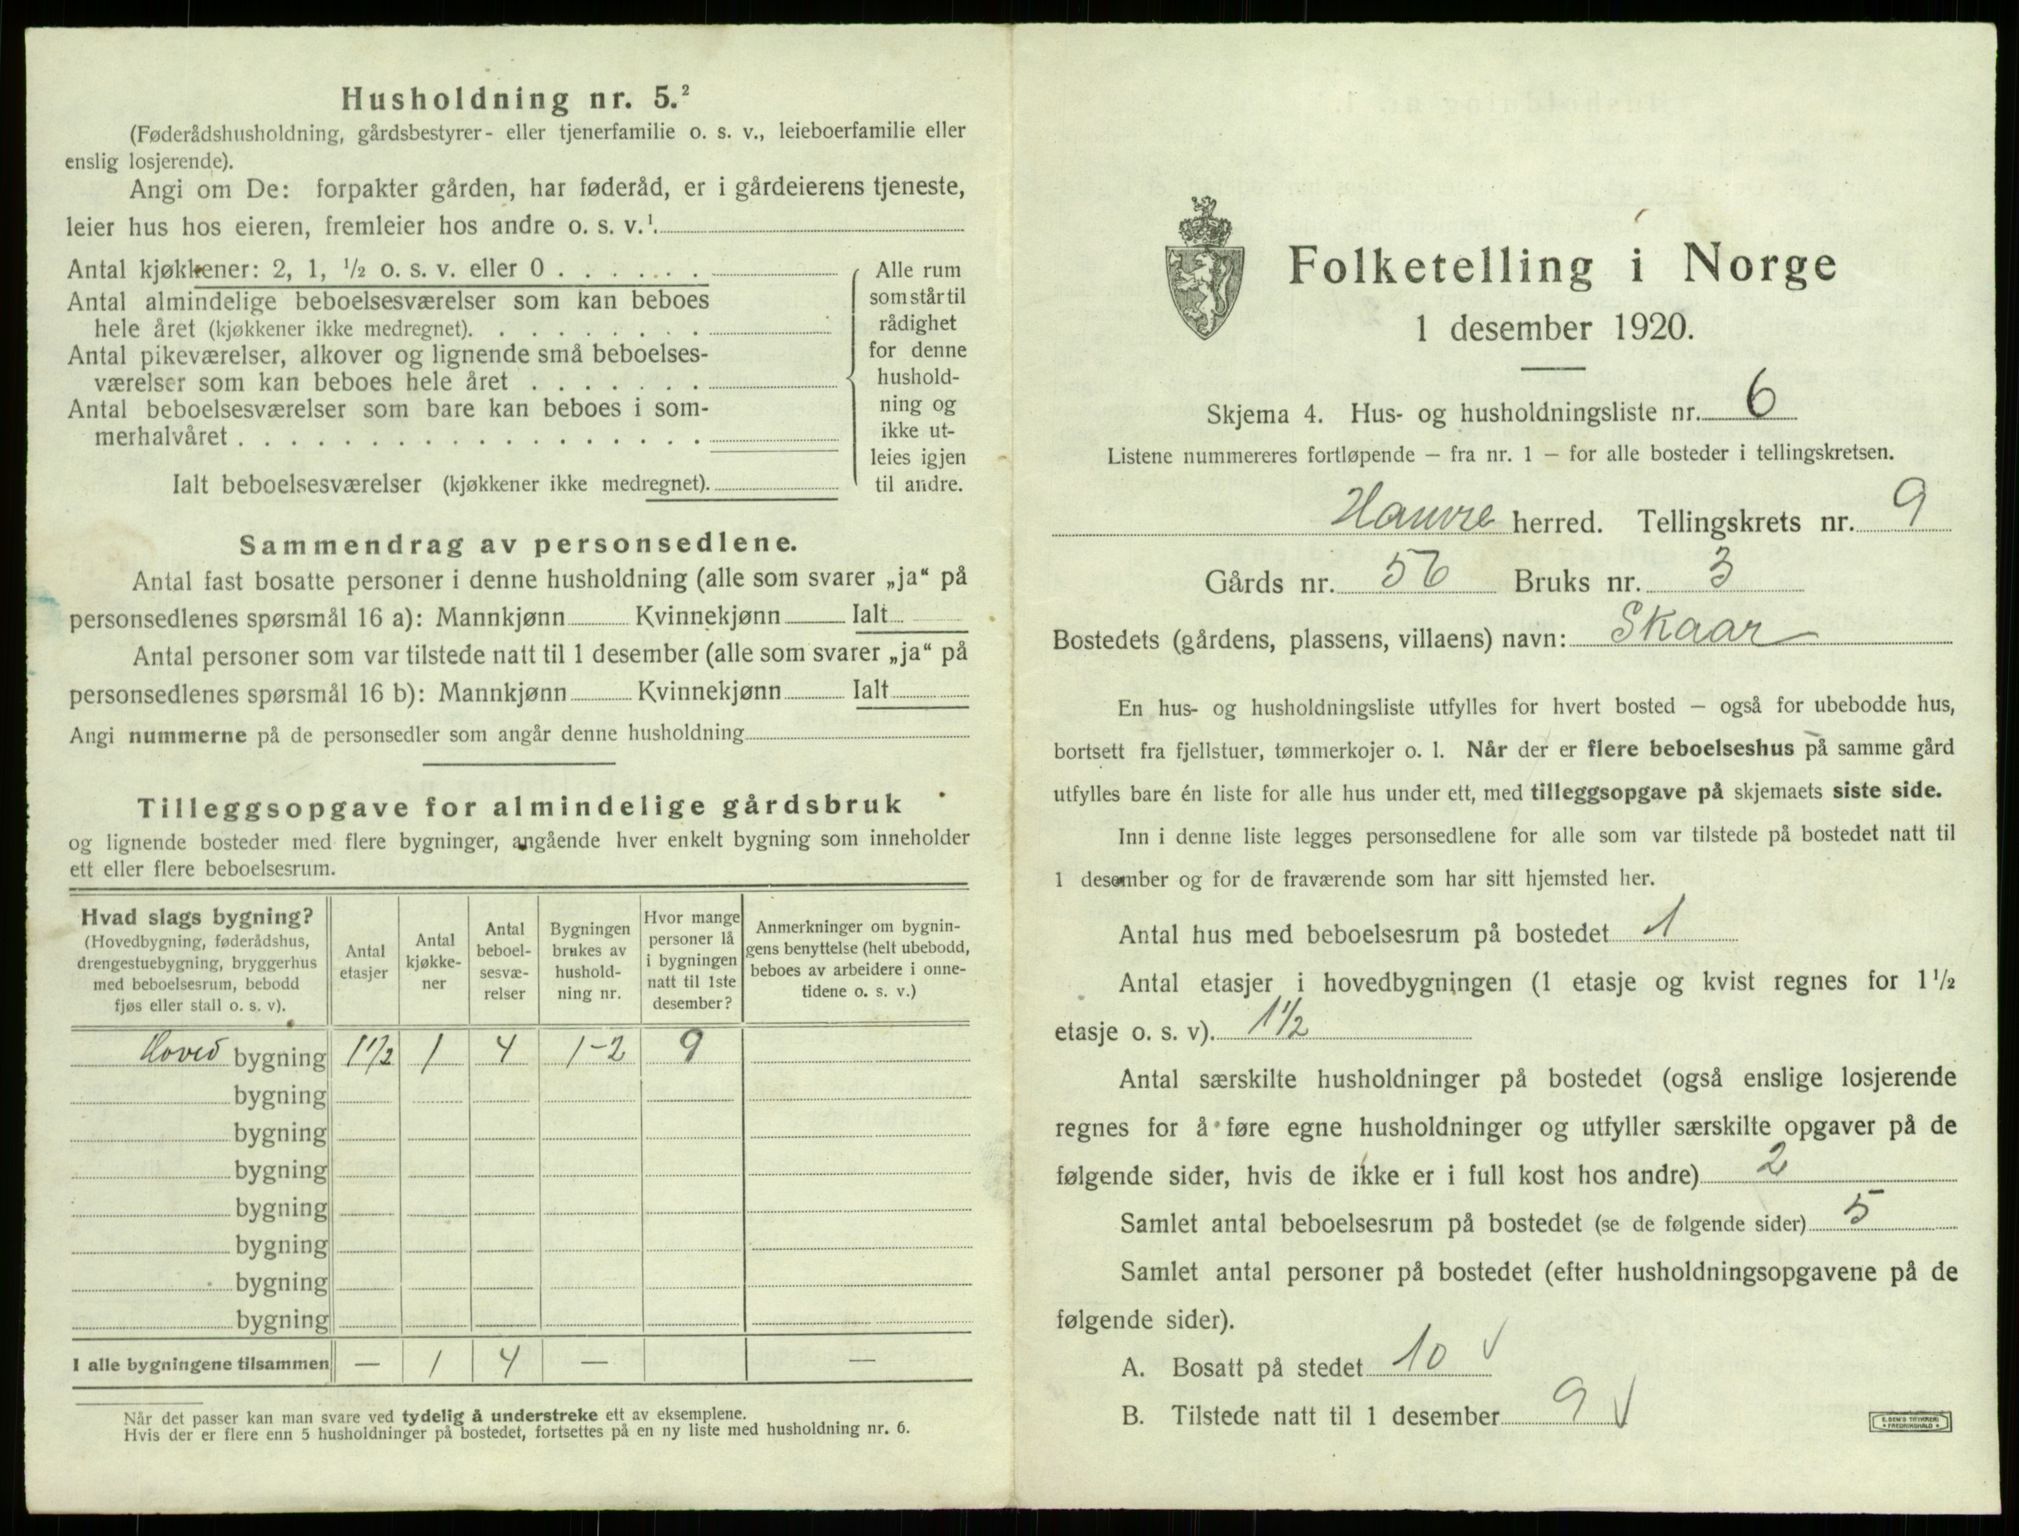 Husholdning nr. 5.²
(Føderådshusholdning, gårdsbestyrer- eller tjenerfamilie o. s. v., leieboerfamilie eller
enslig losjerende).
Angi om De: forpakter gården, har føderåd, er i gårdeierens tjeneste,
leier hus hos eieren, fremleier hos andre o. s. v.¹
Antal kjøkkener: 2, 1, ½ o. s. v. eller 0 . . . . . .
Antal almindelige beboelsesværelser som kan beboes
hele året (kjøkkener ikke medregnet). . . . . . . . .
Antal pikeværelser, alkover og lignende små beboelses-
værelser som kan beboes hele året . . . . . . .
Antal beboelsesværelser som bare kan beboes i som-
merhalvåret . . . . . . . . . . . . . . . . . .
Ialt beboelsesværelser (kjøkkener ikke medregnet).
Alle rum
som står til
rådighet
for denne
hushold-
ning og
ikke ut-
leies igjen
til andre.
Sammendrag av personsedlene.
Antal fast bosatte personer i denne husholdning (alle som svarer „ja“ på
personsedlenes spørsmål 16 a): Mannkjønn Kvinnekjønn Ialt
Antal personer som var tilstede natt til 1 desember (alle som svarer „ja“ på
personsedlenes spørsmål 16 b): Mannkjønn Kvinnekjønn Ialt
Angi nummerne på de personsedler som angår denne husholdning
Tilleggsopgave for almindelige gårdsbruk
og lignende bosteder med flere bygninger, angående hver enkelt bygning som inneholder
ett eller flere beboelsesrum.
Hvad slags bygning?
(Hovedbygning, føderådshus,
drengestuebygning, bryggerhus
med beboelsesrum, bebodd
fjøs eller stall o. s. v).
Antal
etasjer
Antal
kjøkke-
ner
Antal
beboel-
sesvæ-
relser
Bygningen
brukes av
hushold-
ning nr.
Hvor mange
personer lå
i bygningen
natt til 1ste
desember?
Anmerkninger om bygnin-
gens benyttelse (helt ubebodd,
beboes av arbeidere i onne-
tidene o. s. v.)
Hoved bygning 1½ 1 4 1-2 9
bygning
bygning
bygning
bygning
bygning
bygning
bygning
I alle bygningene tilsammen — 1 4 — —
Når det passer kan man svare ved tydelig å understreke ett av eksemplene.
Hvis der er flere enn 5 husholdninger på bostedet, fortsettes på en ny liste med husholdning nr. 6.
Folketelling i Norge
1 desember 1920.
Skjema 4. Hus- og husholdningsliste nr. 6
Listene nummereres fortløpende – fra nr. 1 – for alle bosteder i tellingskretsen.
herred. Tellingskrets nr. 9
Gårds nr. 56 Bruks nr. 3
Bostedets (gårdens, plassens, villaens) navn: Skaar
En hus- og husholdningsliste utfylles for hvert bosted – også for ubebodde hus,
bortsett fra fjellstuer, tømmerkojer o. l. Når der er flere beboelseshus på samme gård
utfylles bare én liste for alle hus under ett, med tilleggsopgave på skjemaets siste side.
Inn i denne liste legges personsedlene for alle som var tilstede på bostedet natt til
1 desember og for de fraværende som har sitt hjemsted her.
Antal hus med beboelsesrum på bostedet 1
Antal etasjer i hovedbygningen (1 etasje og kvist regnes for 1½
etasje o. s. v). 1½
Antal særskilte husholdninger på bostedet (også enslige losjerende
regnes for å føre egne husholdninger og utfyller særskilte opgaver på de
følgende sider, hvis de ikke er i full kost hos andre) 2
Samlet antal beboelsesrum på bostedet (se de følgende sider) 5
Samlet antal personer på bostedet (efter husholdningsopgavene på de
følgende sider).
A. Bosatt på stedet 10 √
B. Tilstede natt til 1 desember 9 √
E. SEM'S TRYKKERI
FREDRIKSHALD